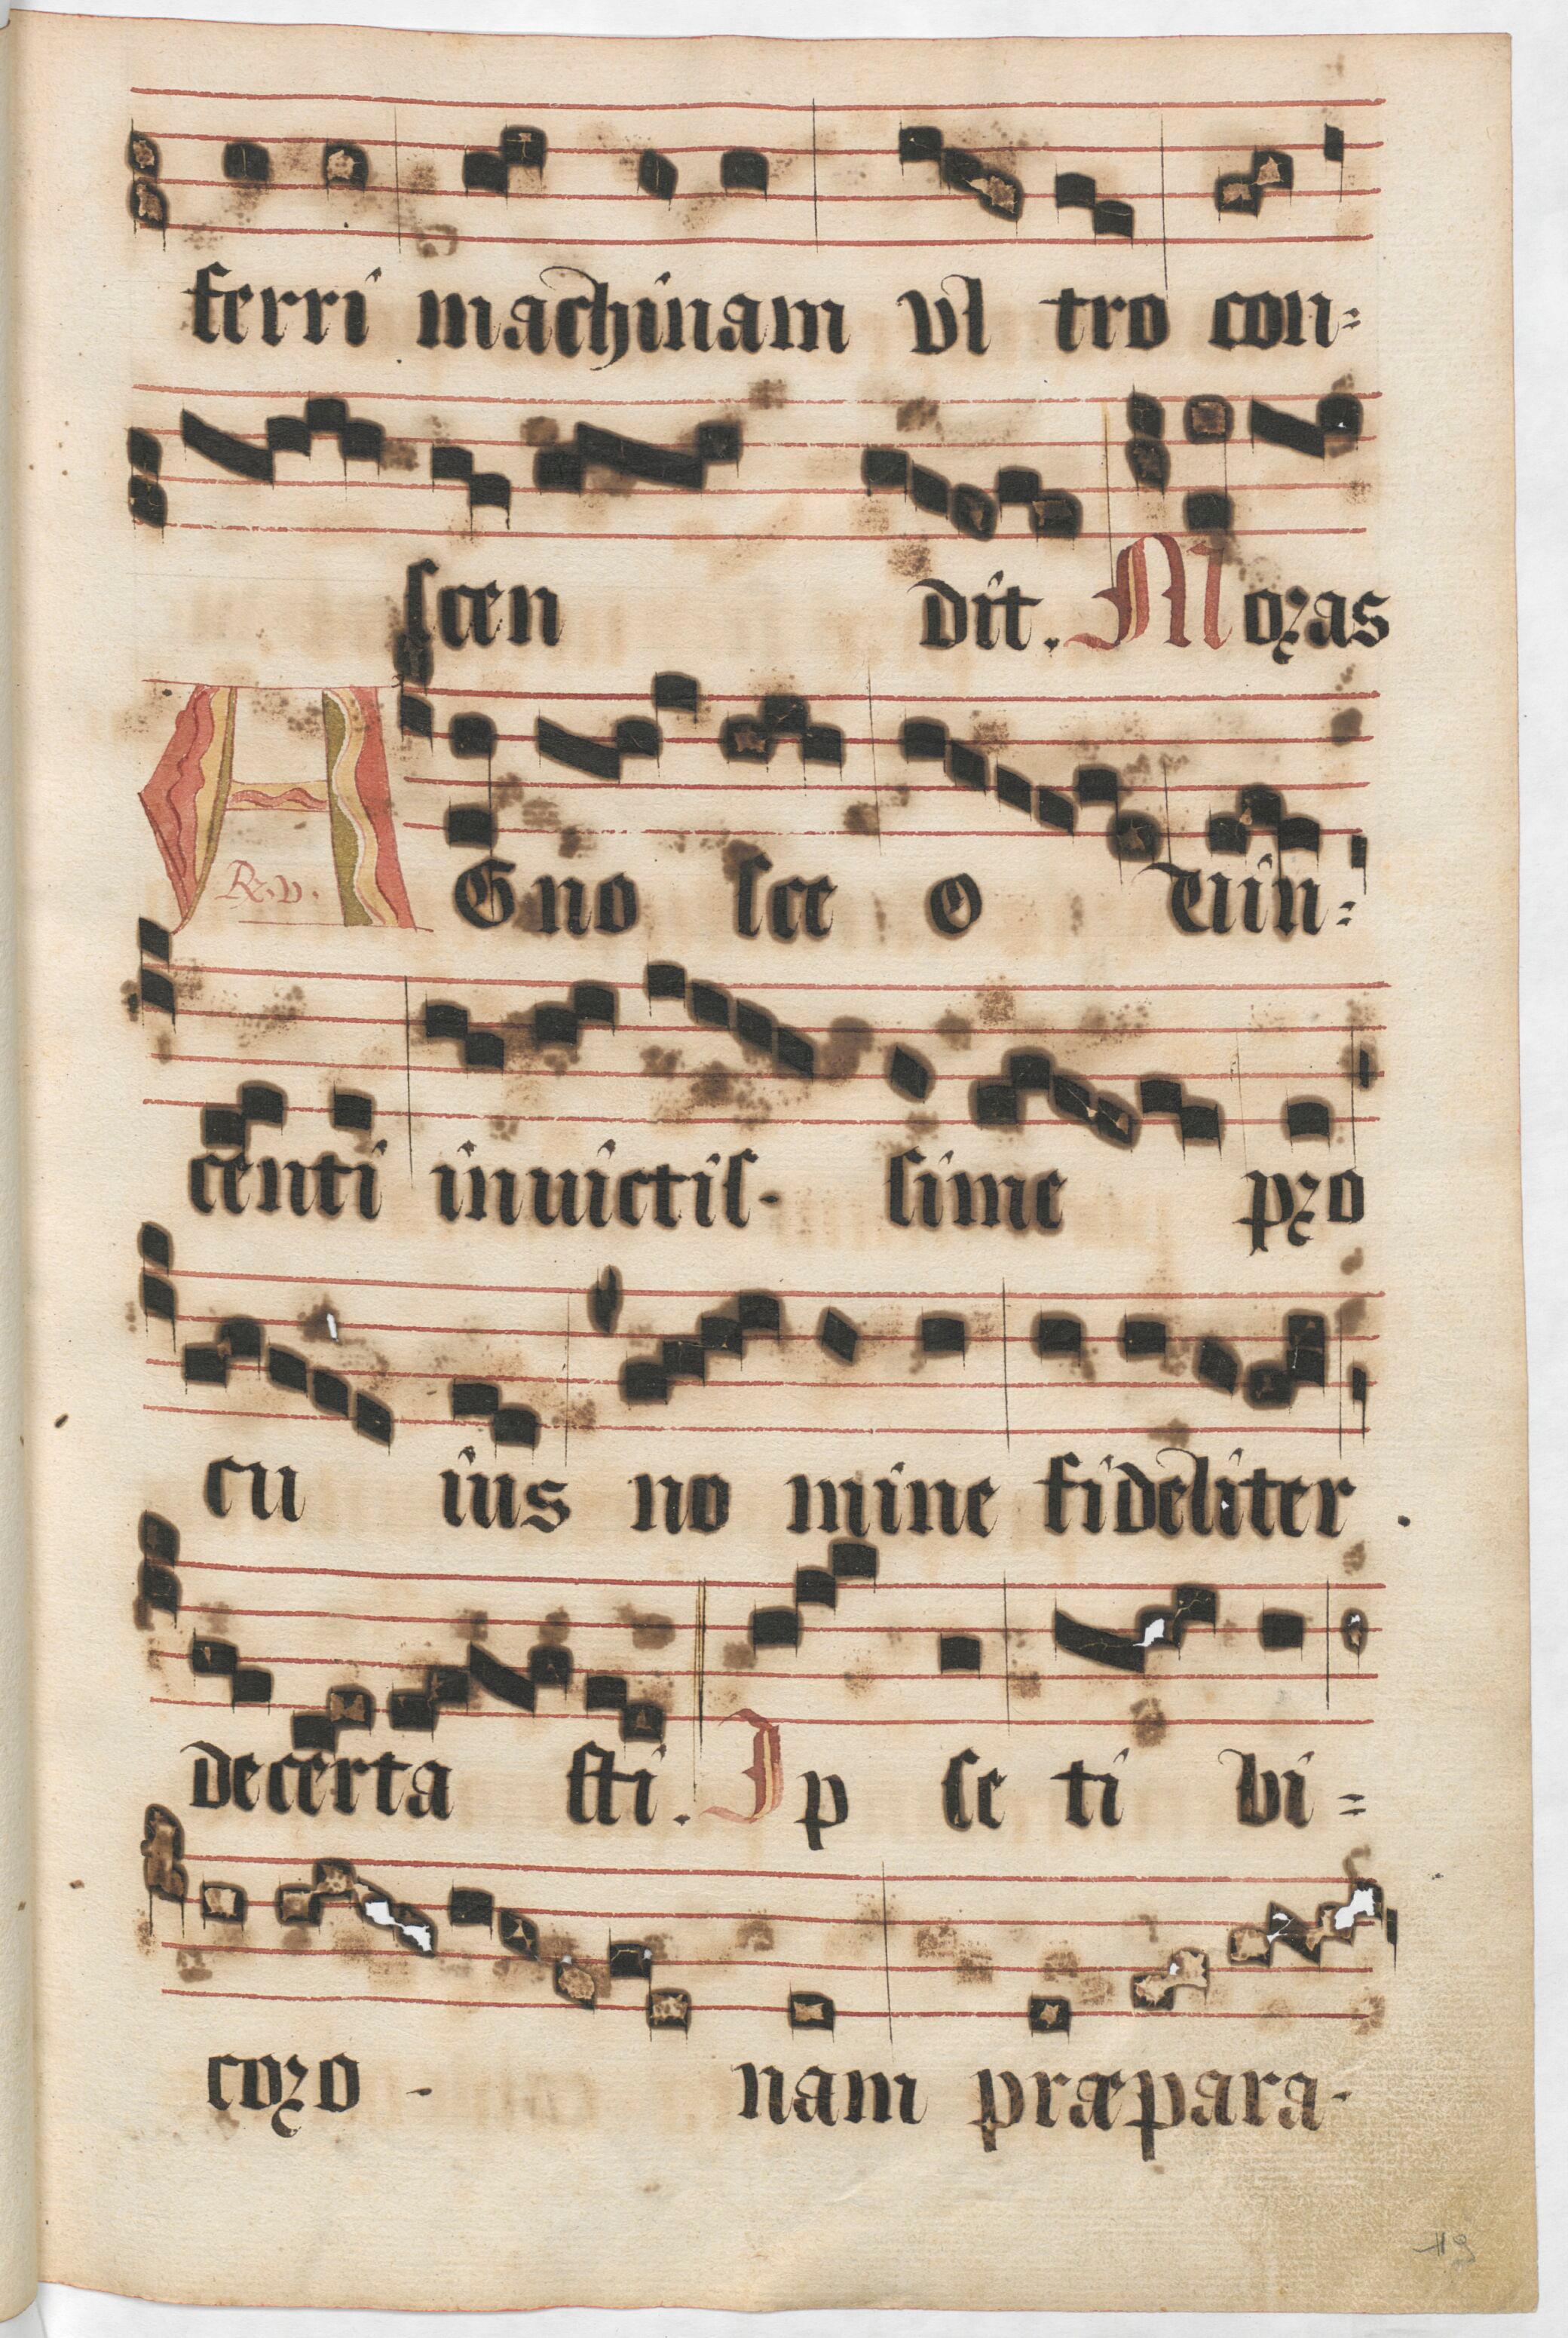 ferri machinam vl tro con=
scen dit. Moras
AGno sce o Uin=
R. v.
centi inuictis- sime pro
cu ius no mine fideliter .
decerta sti. Ip se ti bi =
coro - nam præpara-
119